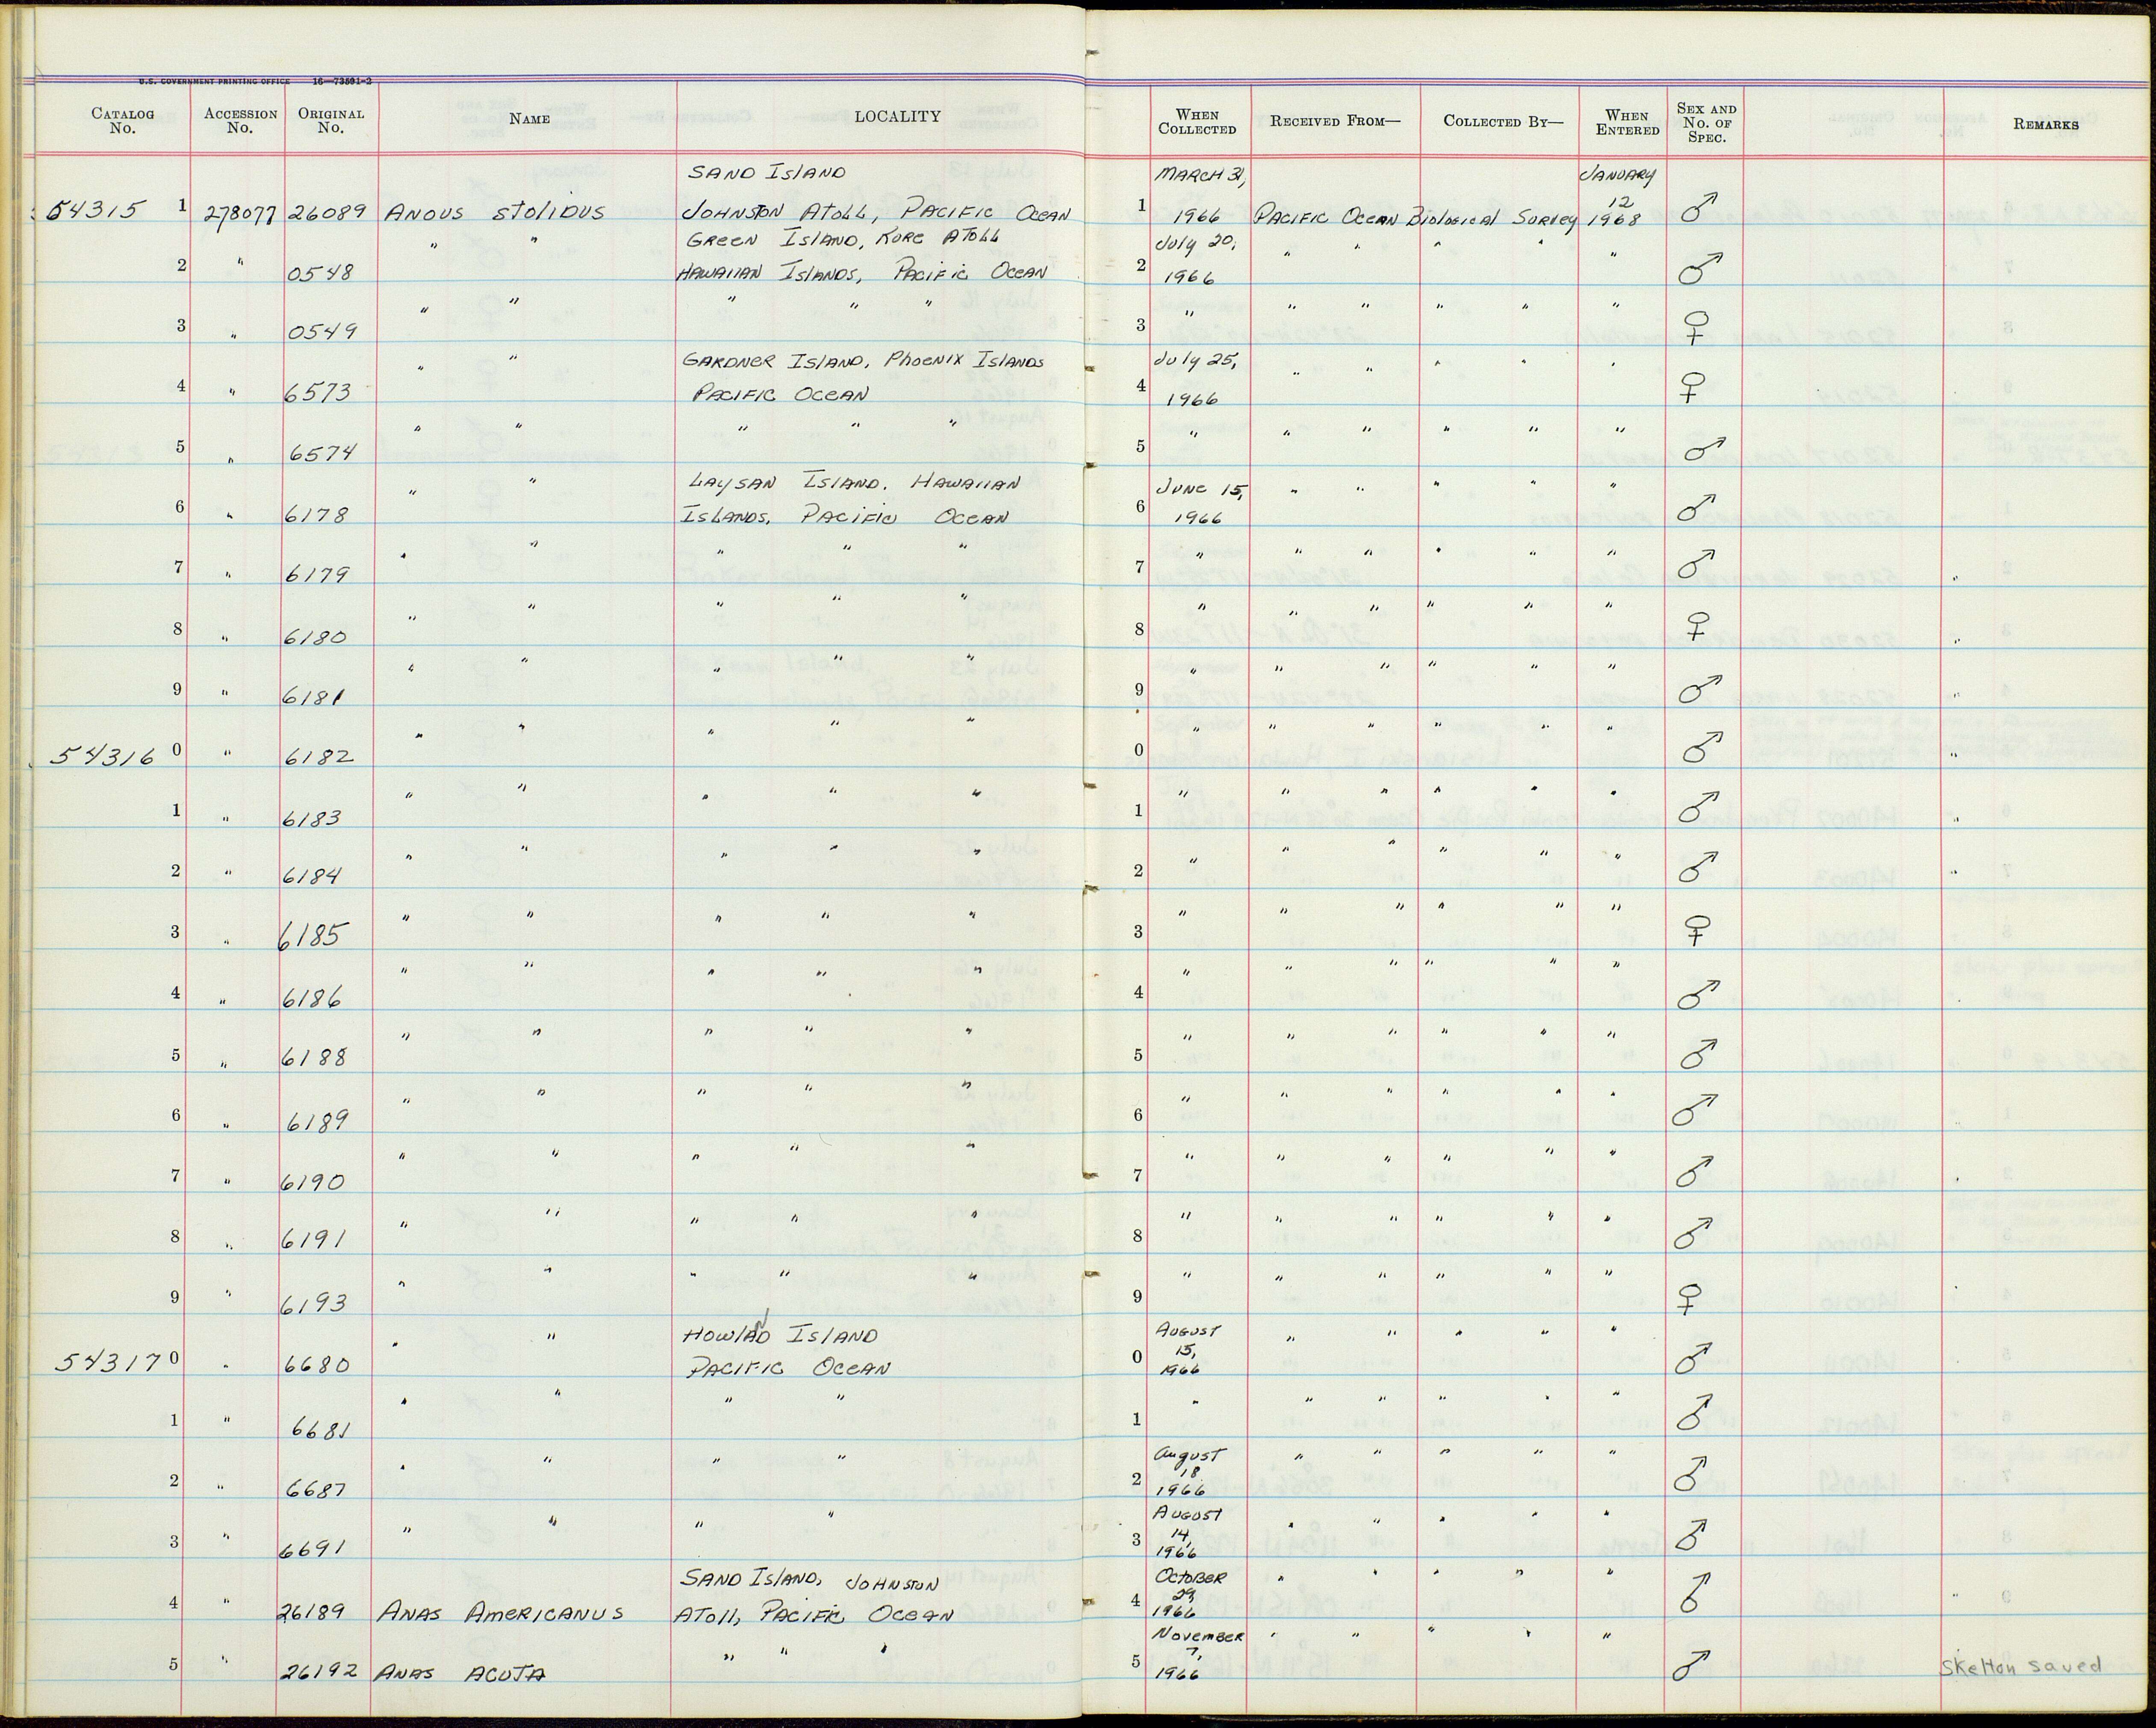 U.S. GOVERNMENT PRINTING OFFICE 16—73591-2
CATALOG No. ACCESSION No. ORIGINAL No. NAME LOCALITY WHEN COLLECTED RECEIVED FROM— COLLECTED BY— WHEN ENTERED SEX AND No. OF SPEC. REMARKS
SAND ISLAND MARCH 31, JANUARY 12
54315 1 278077 26089 ANOUS STOLIDUS JOHNSTON ATOLL, PACIFIC OCEAN 1 1966 PACIFIC OCEAN BIOLOGICAL SURVEY 1968 ♂
" " GREEN ISLAND, KURE ATOLL July 20,
2 " 0548 HAWAIIAN ISLANDS, PACIFIC OCEAN 2 1966 " " " " " ♂
3 " 0549 " " " " " 3 " " " " " " ♀
" " GARDNER ISLAND, PHOENIX ISLANDS July 25,
4 " 6573 PACIFIC OCEAN 4 1966 " " " " " ♀
5 " 6574 " " " " " 5 " " " " " " ♂
" " LAYSAN ISLAND, HAWAIIAN JUNE 15,
6 " 6178 ISLANDS, PACIFIC OCEAN 6 1966 " " " " " ♂
7 " 6179 " " " " " 7 " " " " " " ♂
8 " 6180 " " " " " 8 " " " " " " ♀
9 " 6181 " " " " " 9 " " " " " " ♂
54316 0 " 6182 " " " " " 0 " " " " " " ♂
1 " 6183 " " " " " 1 " " " " " " ♂
2 " 6184 " " " " " 2 " " " " " " ♂
3 " 6185 " " " " " 3 " " " " " " ♀
4 " 6186 " " " " " 4 " " " " " " ♂
5 " 6188 " " " " " 5 " " " " " " ♂
6 " 6189 " " " " " 6 " " " " " " ♂
7 " 6190 " " " " " 7 " " " " " " ♂
8 " 6191 " " " " " 8 " " " " " " ♂
9 " 6193 " " " " " 9 " " " " " " ♀
" " HOWLAND ISLAND AUGUST 15,
54317 0 " 6680 PACIFIC OCEAN 0 1966 " " " " " ♂
1 " 6681 " " " " 1 " " " " " " ♂
2 " 6687 " " " " 2 August 18 1966 " " " " " ♂
3 " 6691 " " " " 3 AUGUST 14, 1966 " " " " " ♂
SAND ISLAND, JOHNSTON OCTOBER 29,
4 " 26189 ANAS AMERICANUS ATOLL, PACIFIC OCEAN 4 1966 " " " " " ♂
5 " 26192 ANAS ACUTA " " " 5 November 7, 1966 " " " " " ♂ Skelton saved